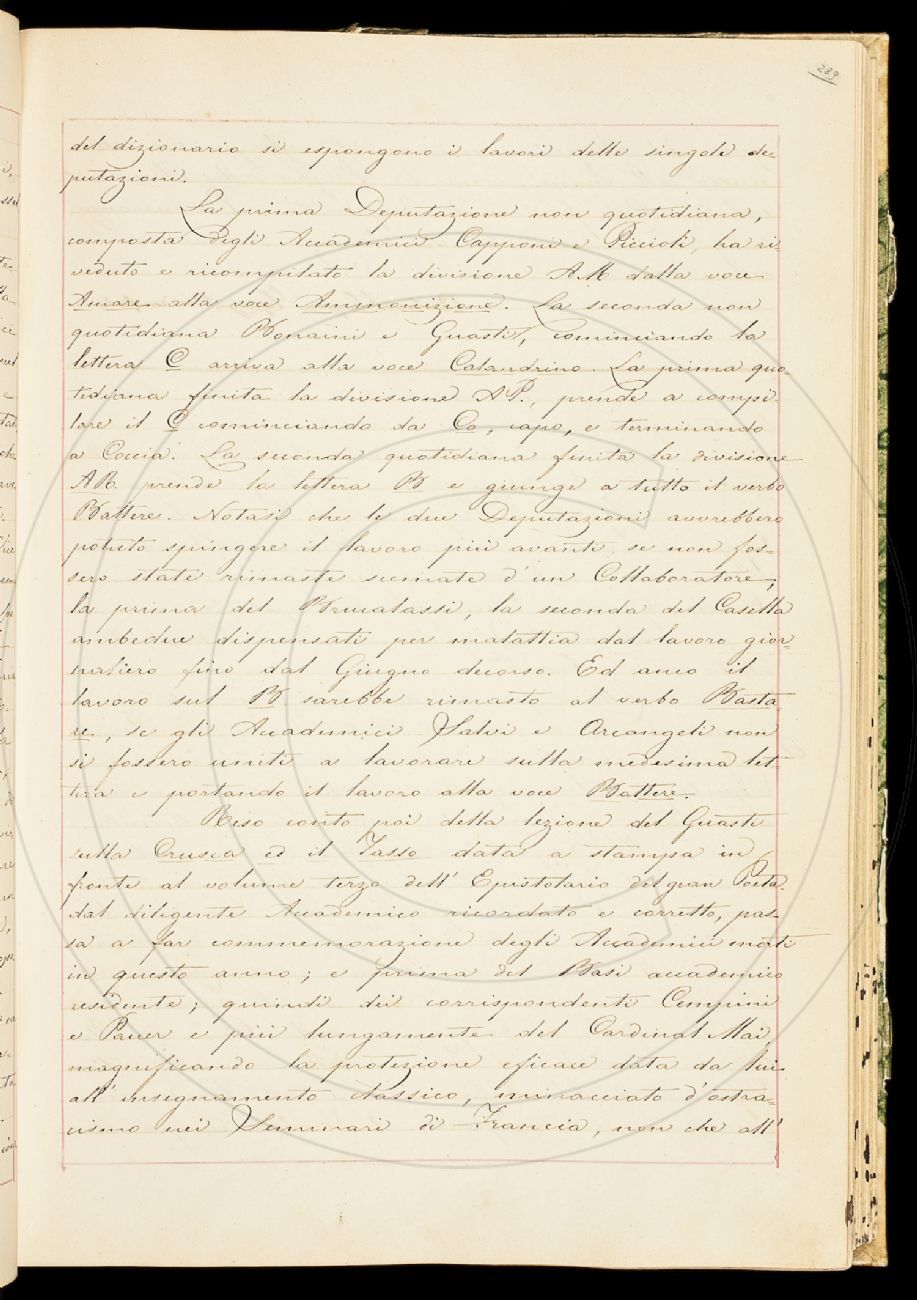 289
del dizionario si espongono i lavori delle singole de=
putazioni.
La prima Deputazione non quotidiana,
composta degli Accademici Capponi e Piccioli, ha ri
veduto e ricompilato la divisione AM dalla voce
Amare alla voce Ammonizione. La seconda non
quotidiana Bonaini e Guasti, cominciando la
lettera C arriva alla voce Calandrino. La prima quo=
tidiana finita la divisione AP., prende a compi=
lare il C cominciando da Co, capo, e terminando
a Coccia. La seconda quotidiana finita la divisione
AR prende la lettera B e giunge a tutto il verbo
Battere. Notasi che le due Deputazioni avrebbero
potuto spingere il lavoro più avanti, se non fos=
sero state rimaste scemate d'un Collaboratore,
la prima del Brucalassi, la seconda del Casella
ambedue dispensati per malattia dal lavoro gior=
naliero fino dal Giugno decorso. Ed anco il
lavoro sul B sarebbe rimasto al verbo Basta=
re, se gli Accademici Salvi e Arcangeli non
si fossero uniti a lavorare sulla medesima let=
tera e portando il lavoro alla voce Battere.
Reso conto poi della lezione del Guasti
sulla Crusca ed il Tasso data a stampa in
fronte al volume terzo dell' Epistolario del gran Poeta.
dal diligente Accademico ricordato e corretto, pas=
sa a far commemorazione degli Accademici morti
in questo anno; e prima del Basi accademico
residente; quindi dei corrispondenti Cempini
e Pauer e più lungamente del Cardinal Mai,
magnificando la protezione eficace data da lui
all' insegnamento classico, minacciato d'ostra=
cismo nei Seminari di Francia, non che all'